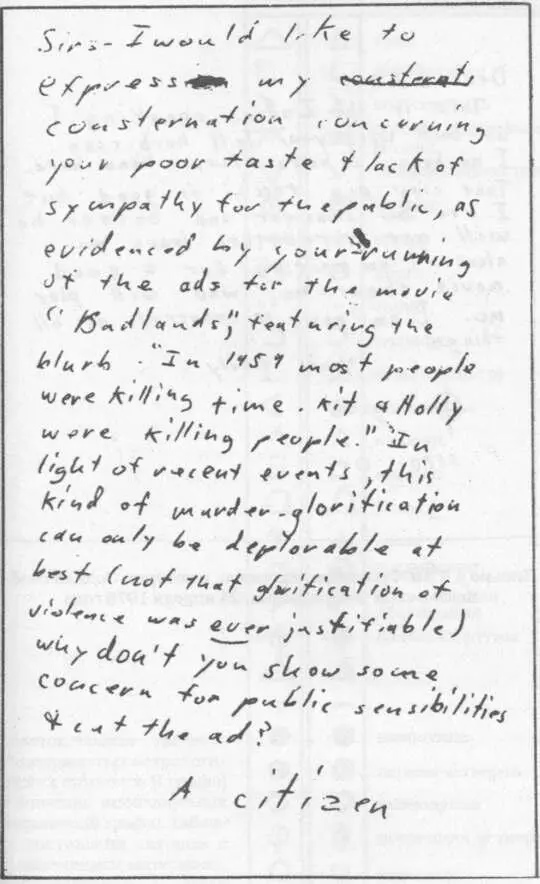 Sirs- I would like to
expression my consternati
consternation concerning
your poor taste & lack of
sympathy for the public, as
evidenced by your running
of the ads for the movie
"Badlands," featuring the
blurb "In 1959 most people
were killing time. Kit & Holly
were killing people." In
light of recent events, this
kind of murder-glorification
can only be deplorable at
best (not that glorification of
violence was ever justifiable)
why don't you show some
concern for public sensibilities
& cut the ad?
A citizen